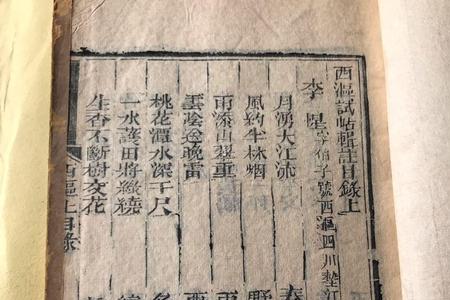 西漚試帖輯註目錄上
李惺字伯子號西漚四川墊江
月湧大江流
風約半林烟
雨添山翠重
雲陰送晚雷
桃花潭水深千尺
一水護田將綠繞
生香不斷樹交花
西漚上目錄